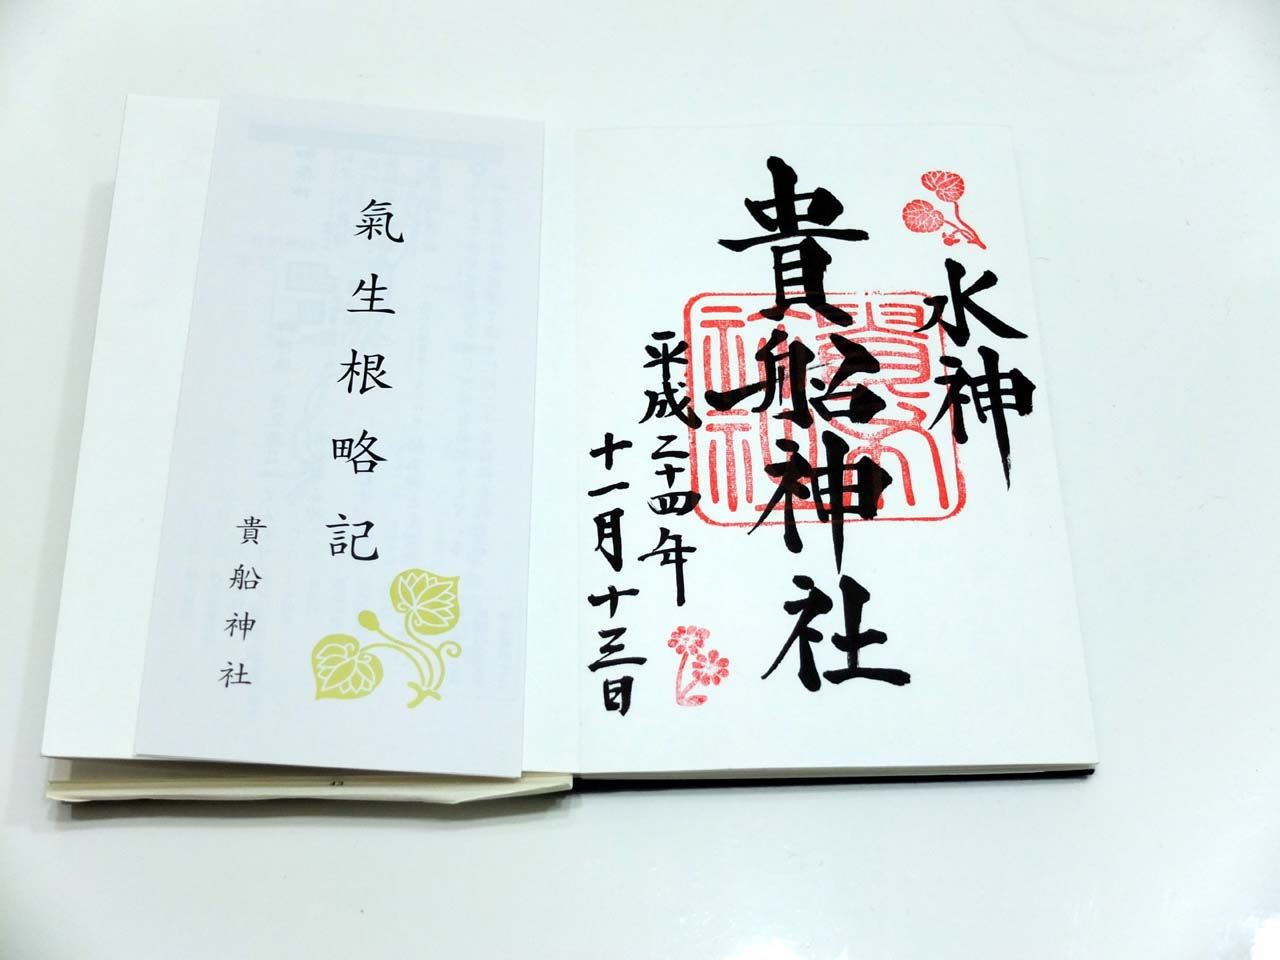 水神
貴船神社
平成二十四年
十一月十三日
氣生根略記
貴船神社